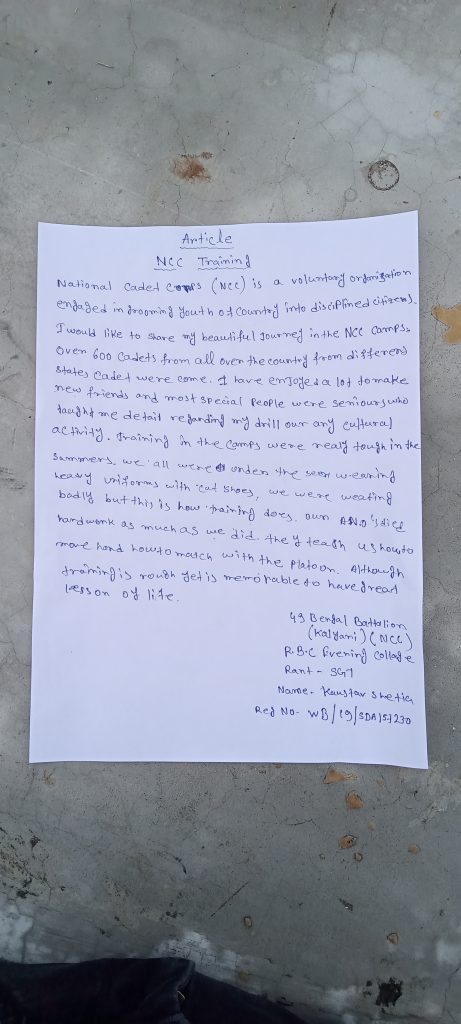 Article
NCC Training
National Caded Corps (NCC) is a voluntary organization
engaged in grooming youth of Country into disciplined citizens.
I would like to share my beautiful Journey in the NCC Camps.
Over 600 Cadets from all over the country from different
states Cadet were come. I have enjoyed a lot to make
new friends and most special people were seniours who
taught me detail regarding my drill our any cultural
activity. Training in the camps were realy tough in the
Summers. we all were under the wearing
heavy uniforms with cat shoes, we were weating
badly but this is how training does. our ANO's died
hardwork as much as we did. they teach us how to
move hand how to match with the Platoon. Although
training is rough yet is memorable to have great
lesson of life.
49 Bengal Battalion
(Kalyani) (NCC)
R.B.C Evening Collage
Rant - SGT
Name - Kaustav
Reg No- WB/19/SDA/57230